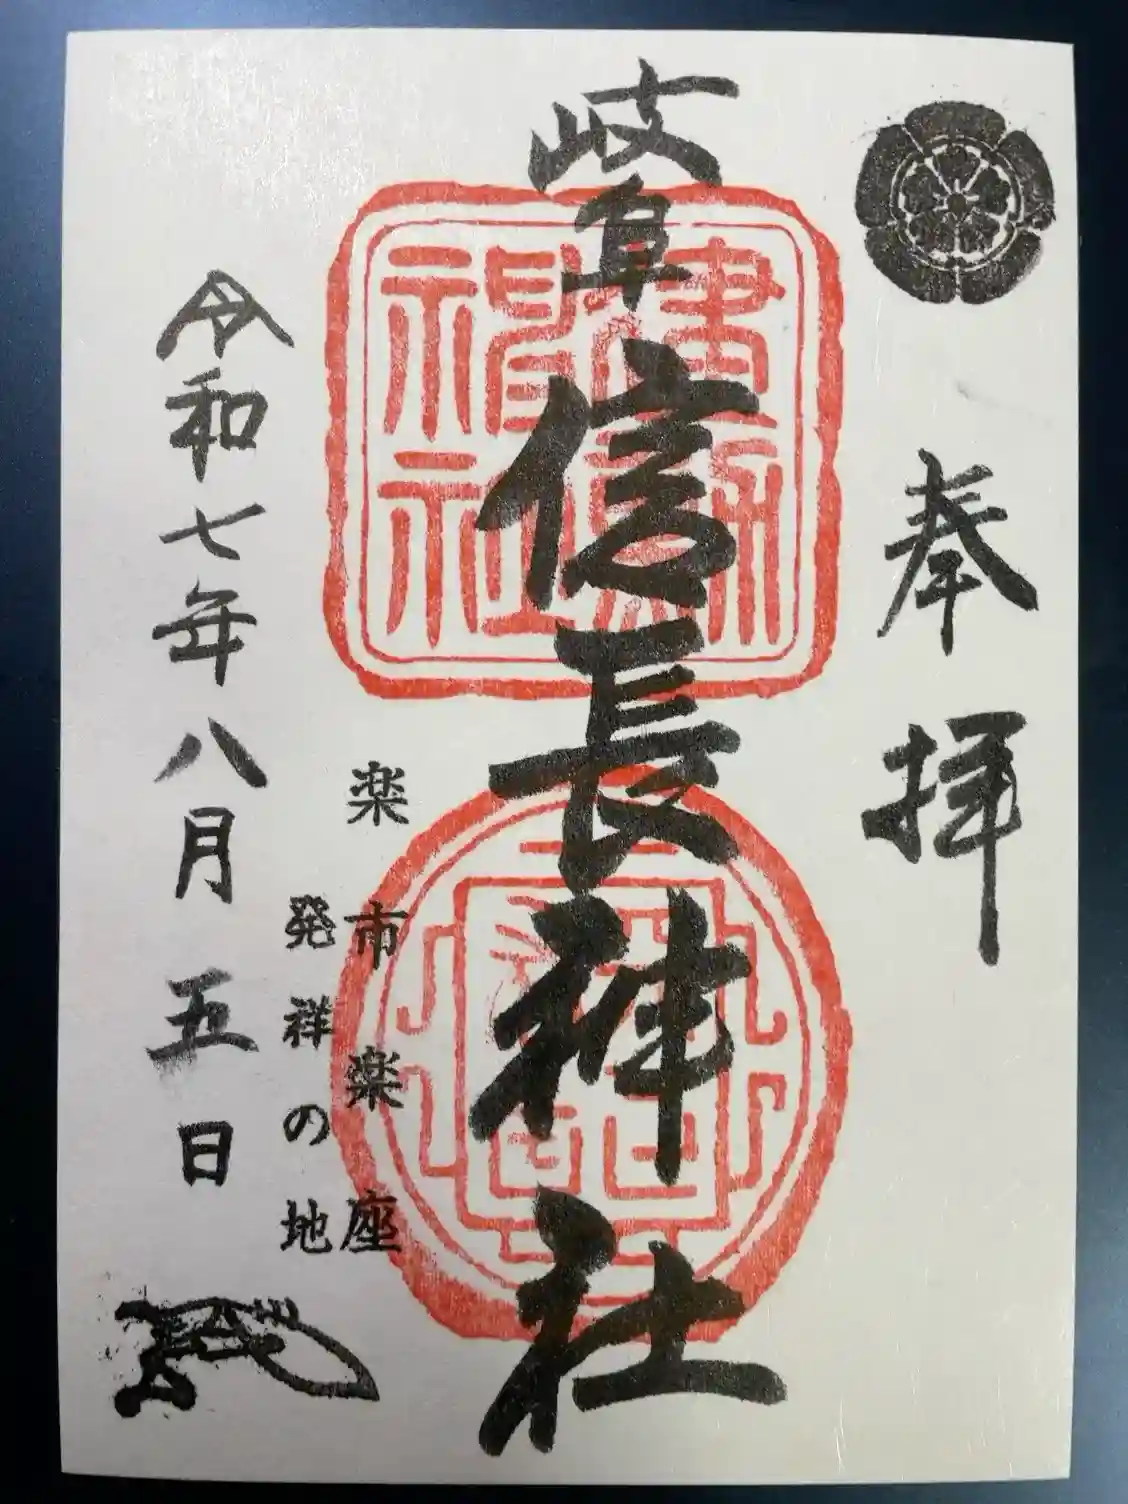 奉拝
岐阜信長神社
建勲神社
楽市楽座
発祥の地
令和七年八月五日